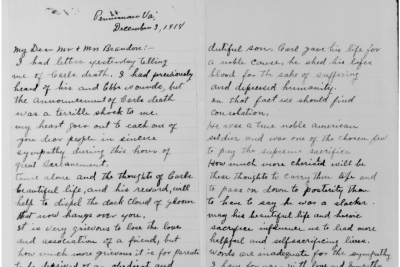 Penniman Va.
December 3, 1918
My Dear Mr + Mrs Brandon:-
I had letter yesterday telling
me of Carls death. I had previously
heard of his and Ebbs wounds, but
the announcement of Carls death
was a terrible shock to me.
my heart goes out to each one of
you dear people in sincere
sympathy during this hour of
great bereavement.
time alone and the thoughts of Carls
beautiful life, and his reward, will
help to dispel the dark cloud of gloom
that now hangs over you.
It is very grievous to love the love
and association of a friend, but
how much more grievous it is for parents
to be deprived of an obedient and
dutiful son. Carl gave his life for
a noble cause, he shed his lifes
blood for the sake of suffering
and depressed humanity.
in that fact we should find
consolation,
He was a true noble american
soldier and was one of the chosen few
to pay the supreme sacrifice.
How much more cherished will be
those thoughts to carry thru life and
to pass on down to posterity than
to have to say he was a slacker.
may his beautiful life and heroic
sacrifice influence us to lead more
helpful and selfsacrificing lives.
Words are inadequate for the sympathy
I have for you, with love and sympathy